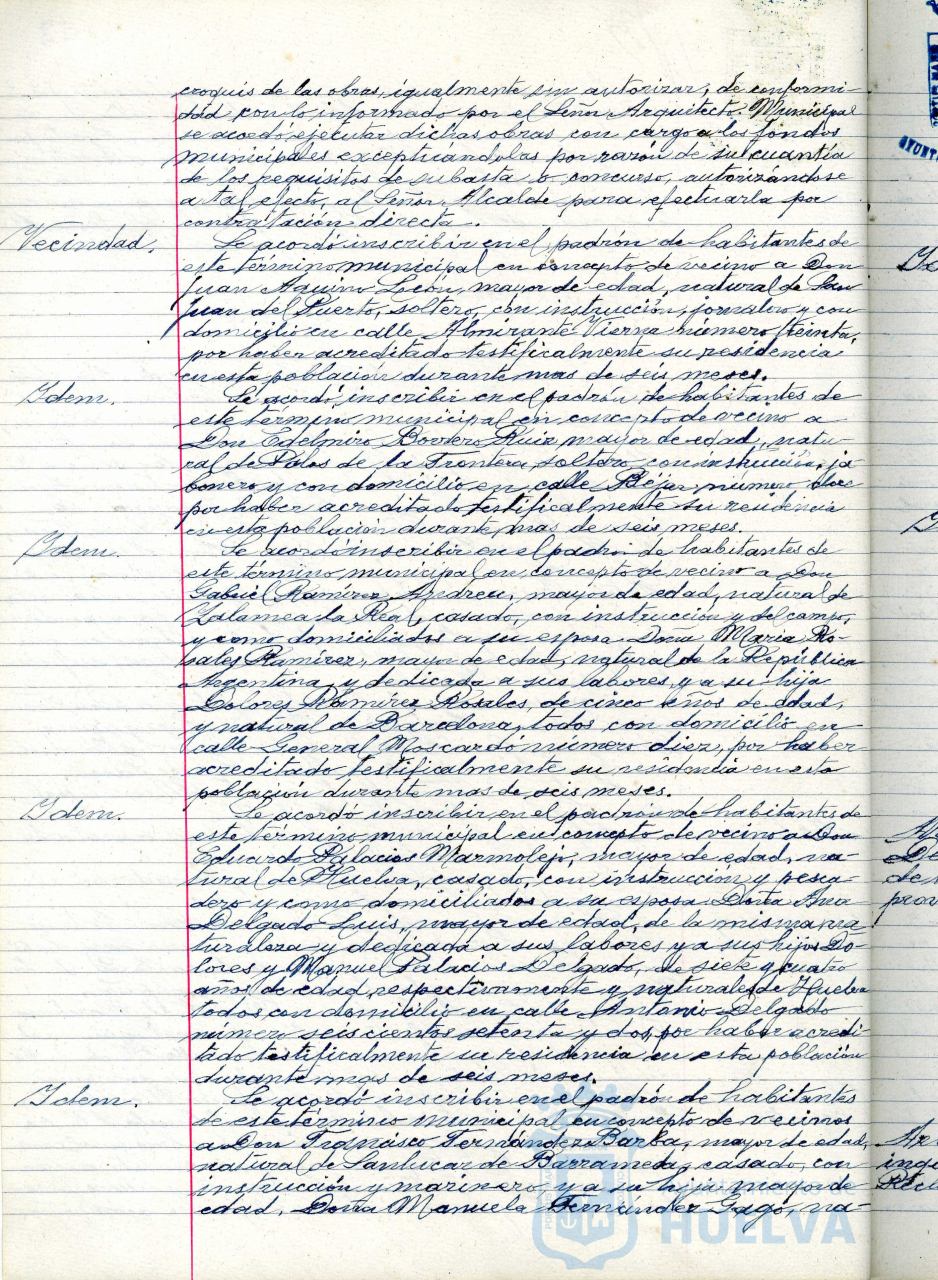 croquis de las obras, igualmente sin autorizar, de conformi-
dad con lo informado por el Señor Arquitecto Municipal
se acordó ejecutar dichas obras con cargo a los fondos
municipales exceptuándolas por razón de su cuantía
de los requisitos de subasta o concurso, autorizándose
a tal efecto, al Señor Alcalde para efectuarla por
contratación directa.
Vecindad.
Se acordó inscribir en el padrón de habitantes de
este término municipal en concepto de vecino a Don
Juan Aquino León, mayor de edad, natural de San
Juan del Puerto, soltero, con instrucción, jornalero y con
domicilio en calle Almirante Vierna número treinta,
por haber acreditado testificalmente su residencia
en esta población durante mas de seis meses.
Idem.
Se acordó inscribir en el padrón de habitantes de
este término municipal en concepto de vecino a
Don Edelmiro Borrero Ruiz mayor de edad, natu-
ral de Palos de la Frontera, soltero, con instrucción, ja
bonero y con domicilio en calle Béjar número doce
por haber acreditado testificalmente su residencia
en esta población durante mas de seis meses.
Idem.
Se acordó inscribir en el padrón de habitantes de
este término municipal en concepto de vecino a Don
Gabriel Ramírez Andreu, mayor de edad, natural de
Zalamea la Real, casado, con instrucción y del campo,
y como domiciliados a su esposa Doña Maria Ro-
sales Ramírez, mayor de edad, natural de la República
Argentina y dedicada a sus labores, y a su hija
Dolores Ramírez Rosales, de cinco años de edad,
y natural de Barcelona, todos con domicilio en
calle General Moscardó número diez, por haber
acreditado testificalmente su residencia en esta
población durante mas de seis meses.
Idem.
Se acordó inscribir en el padrón de habitantes de
este término municipal en concepto de vecino a Don
Eduardo Palacios Marmolejo, mayor de edad, na-
tural de Huelva, casado, con instrucción y pesca-
dero y como domiciliados a su esposa Doña Ana
Delgado Luis, mayor de edad, de la misma na
turaleza y dedicada a sus labores, y a sus hijos Do-
lores y Manuel Palacios Delgado, de siete y cuatro
años de edad respectivamente y naturales de Huelva
todos con domicilio en calle Antonio Delgado
número seiscientos setenta y dos, por haber acredi-
tado testificalmente su residencia en esta población
durante mas de seis meses.
Idem.
Se acordó inscribir en el padrón de habitantes
de este término municipal en concepto de vecinos
a Don Francisco Fernández Barba, mayor de edad,
natural de Sanlucar de Barrameda, casado, con
instrucción y marinero y a su hija mayor de
edad, Doña Manuela Fernández Gago, na-
HUELVA